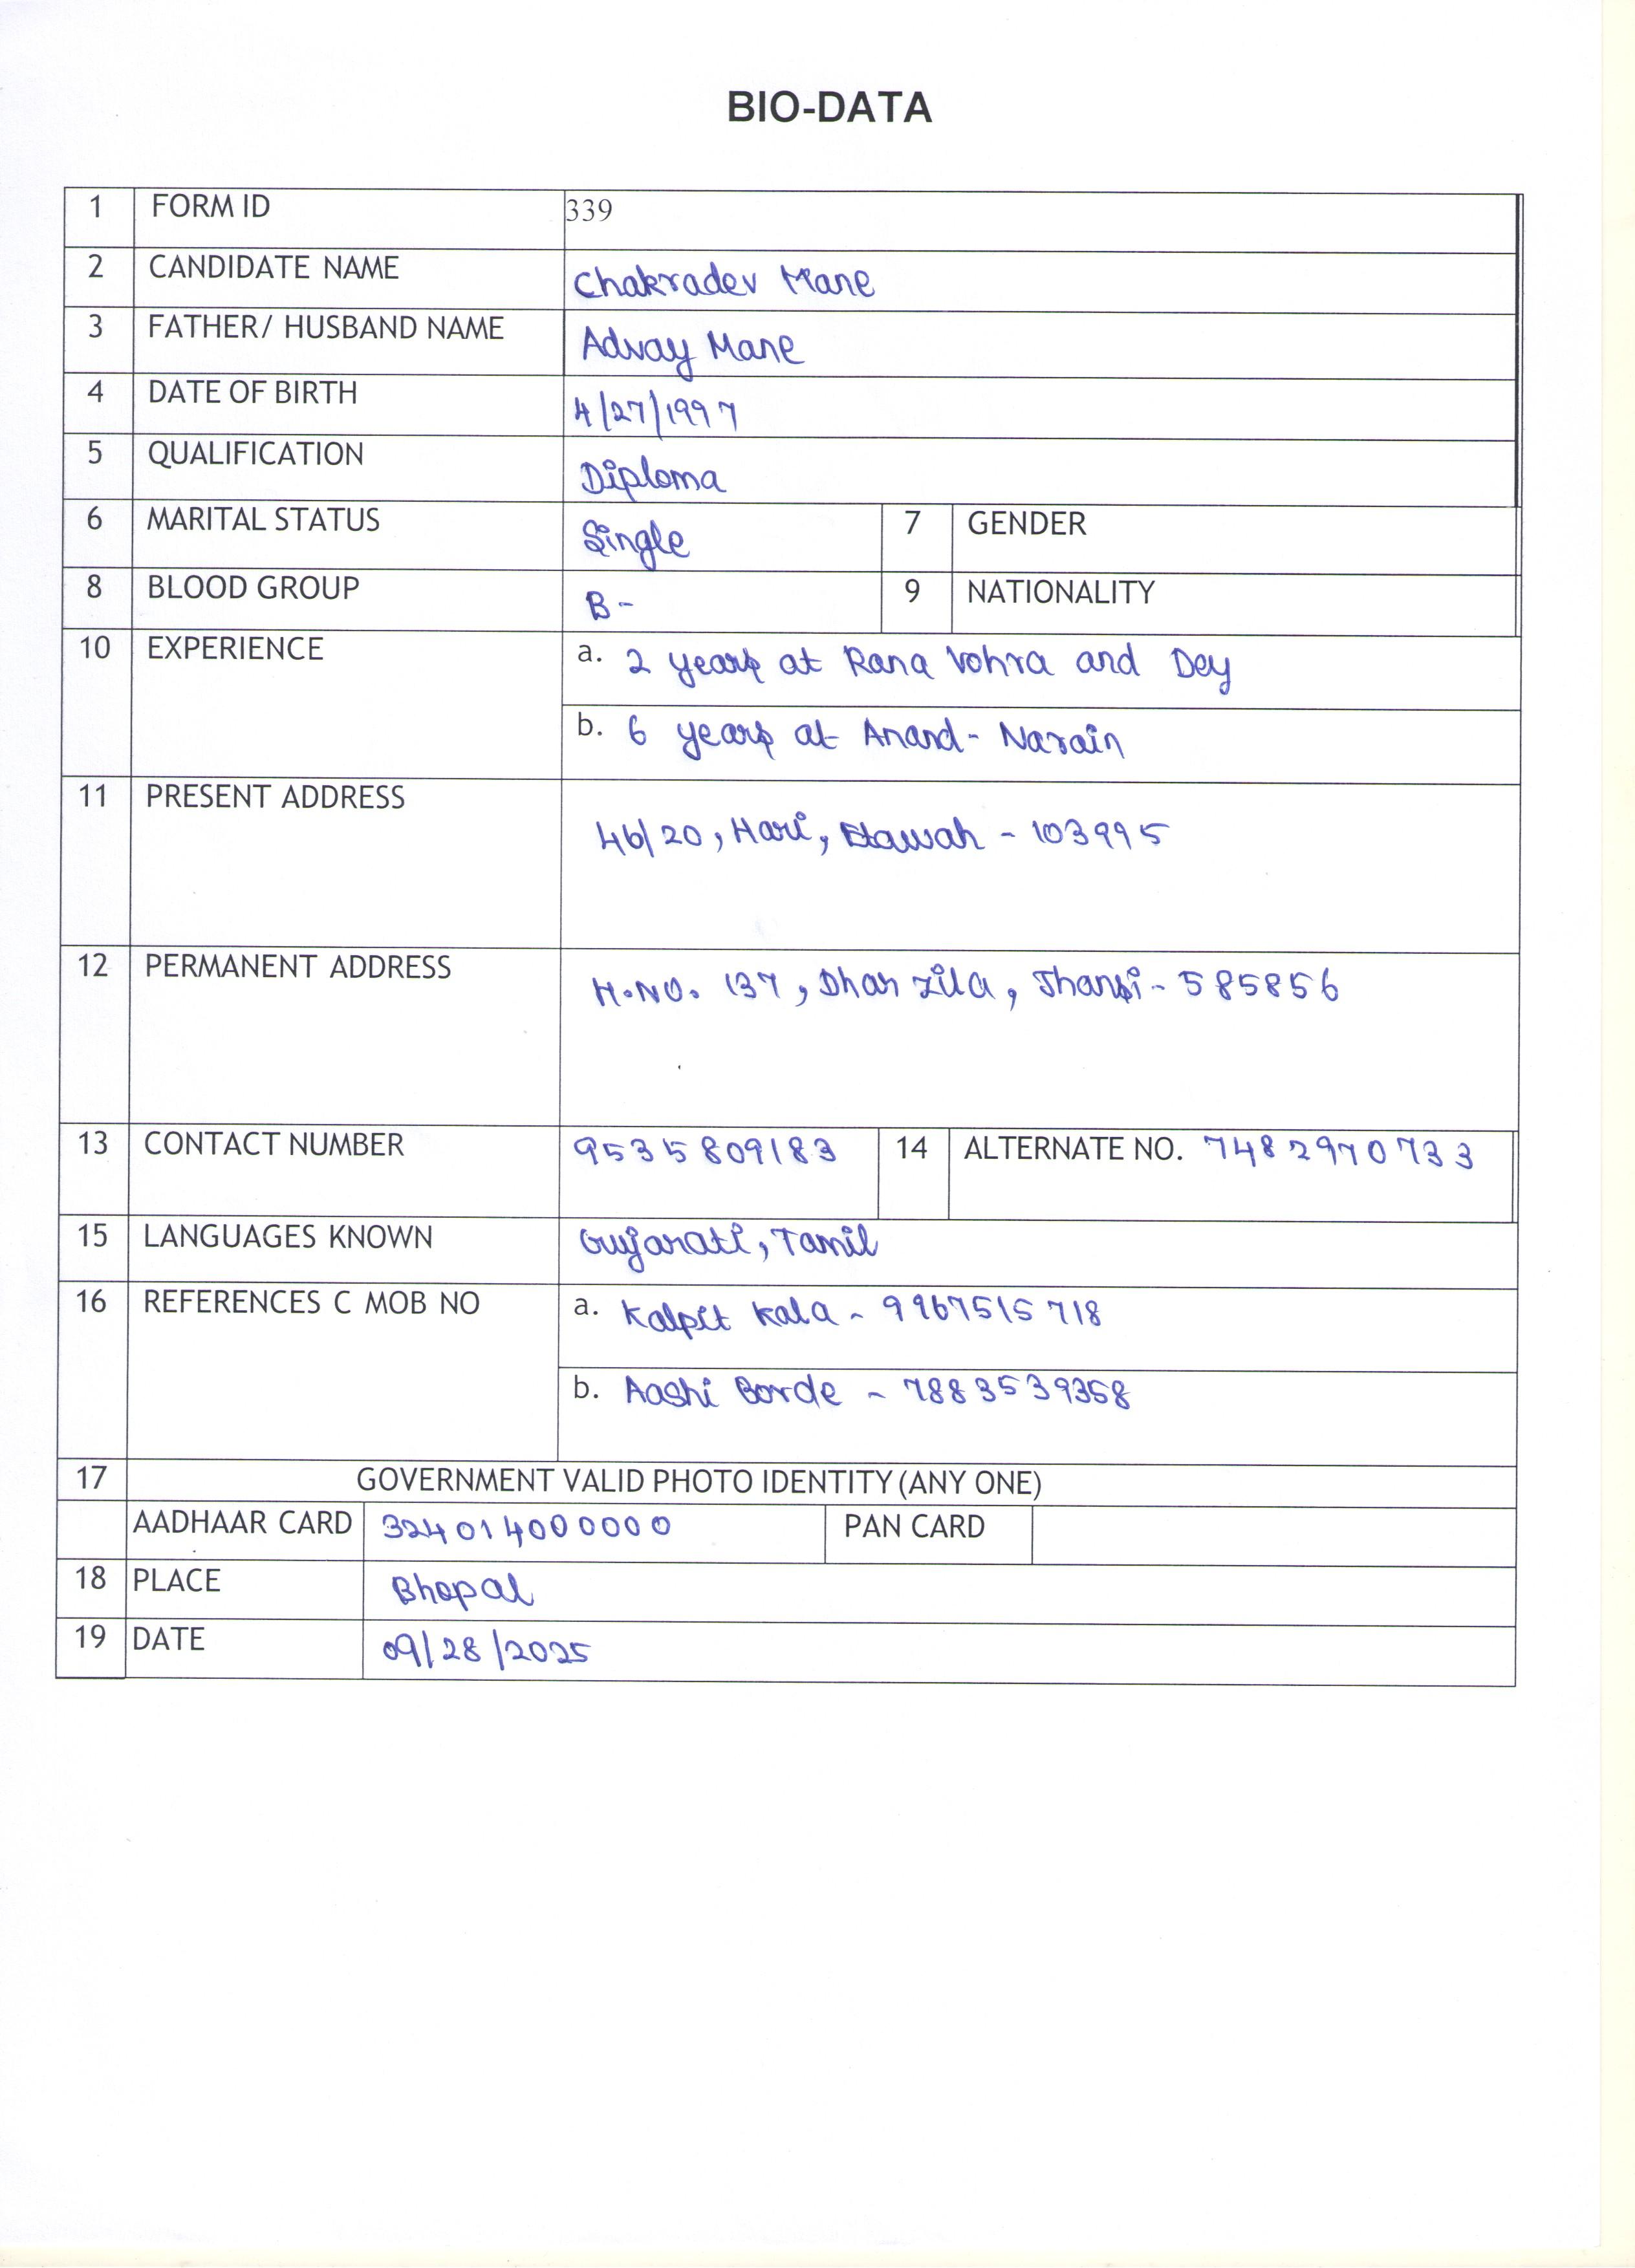 BIO-DATA
1 FORM ID 339
2 CANDIDATE NAME Chakradev Mane
3 FATHER/ HUSBAND NAME Advay Mane
4 DATE OF BIRTH 4/27/1997
5 QUALIFICATION Diploma
6 MARITAL STATUS Single 7 GENDER
8 BLOOD GROUP B- 9 NATIONALITY
10 EXPERIENCE a. 2 years at Rana Vohra and Dey
b. 6 years at Anand- Narain
11 PRESENT ADDRESS
46/20, Hari, Etawah - 103995
12 PERMANENT ADDRESS H.NO. 137, Dhar Zila, Jhansi - 585856
13 CONTACT NUMBER 9535809183 14 ALTERNATE NO. 7482970733
15 LANGUAGES KNOWN Gujarati, Tamil
16 REFERENCES C MOB NO a. Kalpit Kala - 9967515718
b. Aashi Borde - 7883539358
17 GOVERNMENT VALID PHOTO IDENTITY (ANY ONE)
AADHAAR CARD 324014000000 PAN CARD
18 PLACE Bhopal
19 DATE 09/28/2025